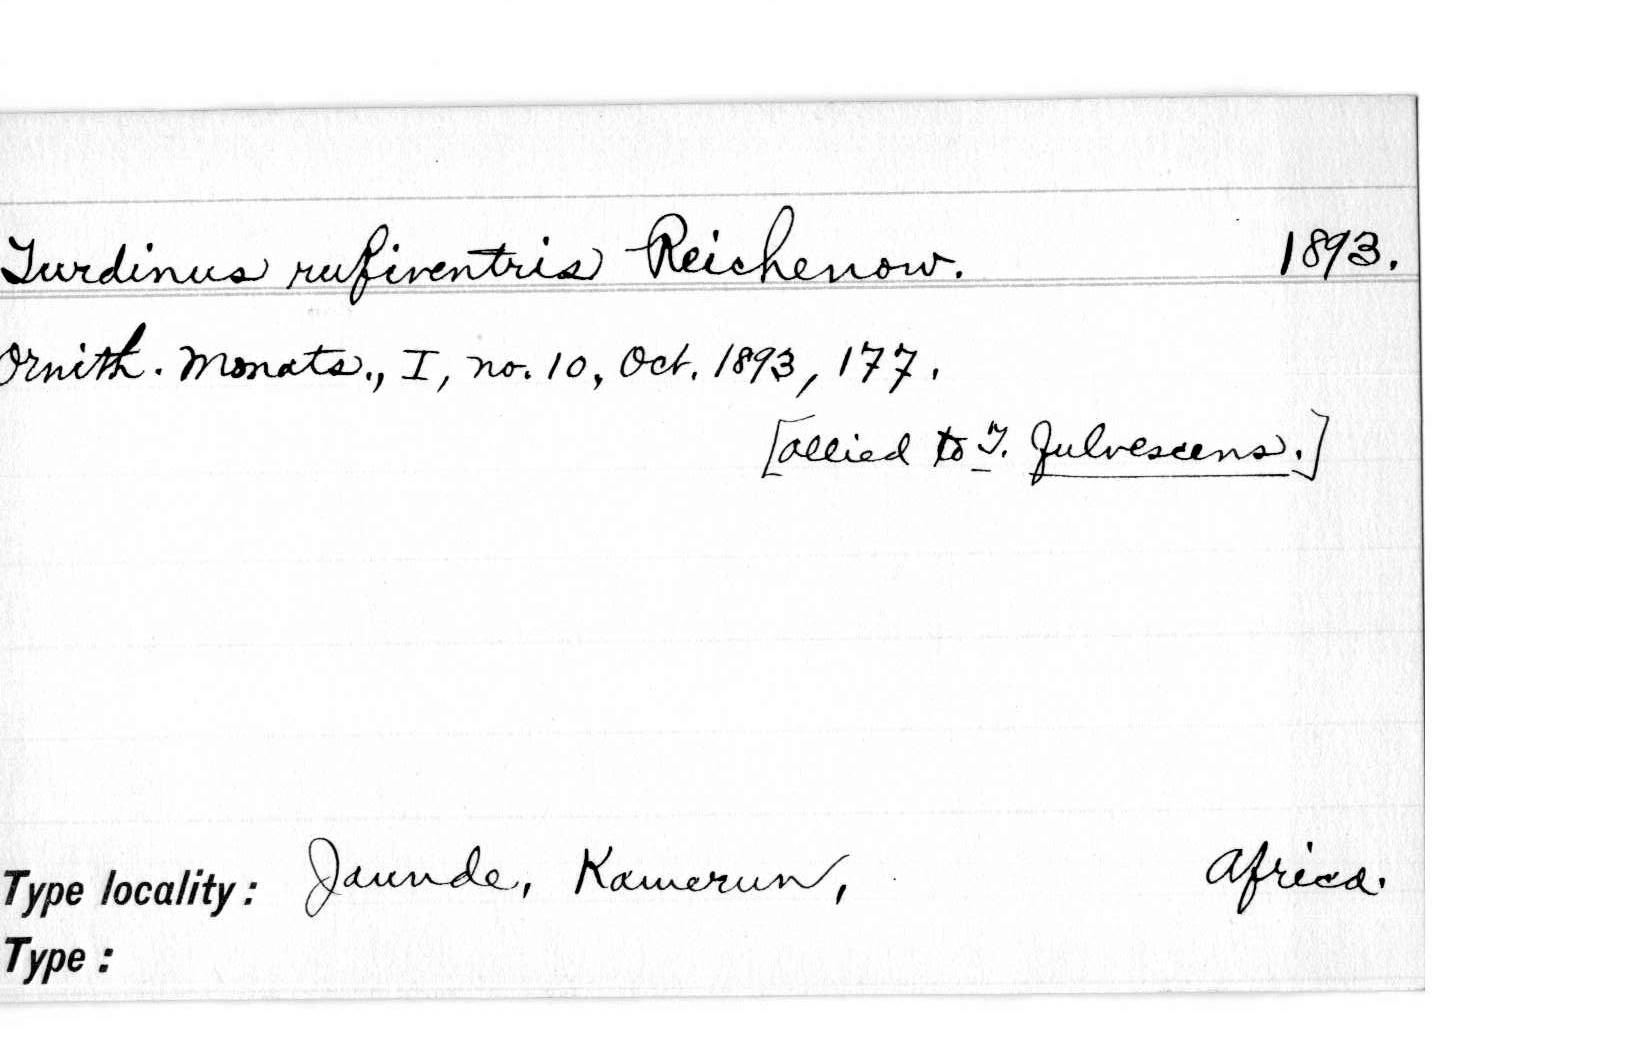 Turdinus rufiventris Reichenow. 1893.
Ornith. Monats., I, no. 10, Oct. 1893, 177.
[allied to T. fulvescens.]
Type locality: Jaunde, Kamerun, Africa.
Type: